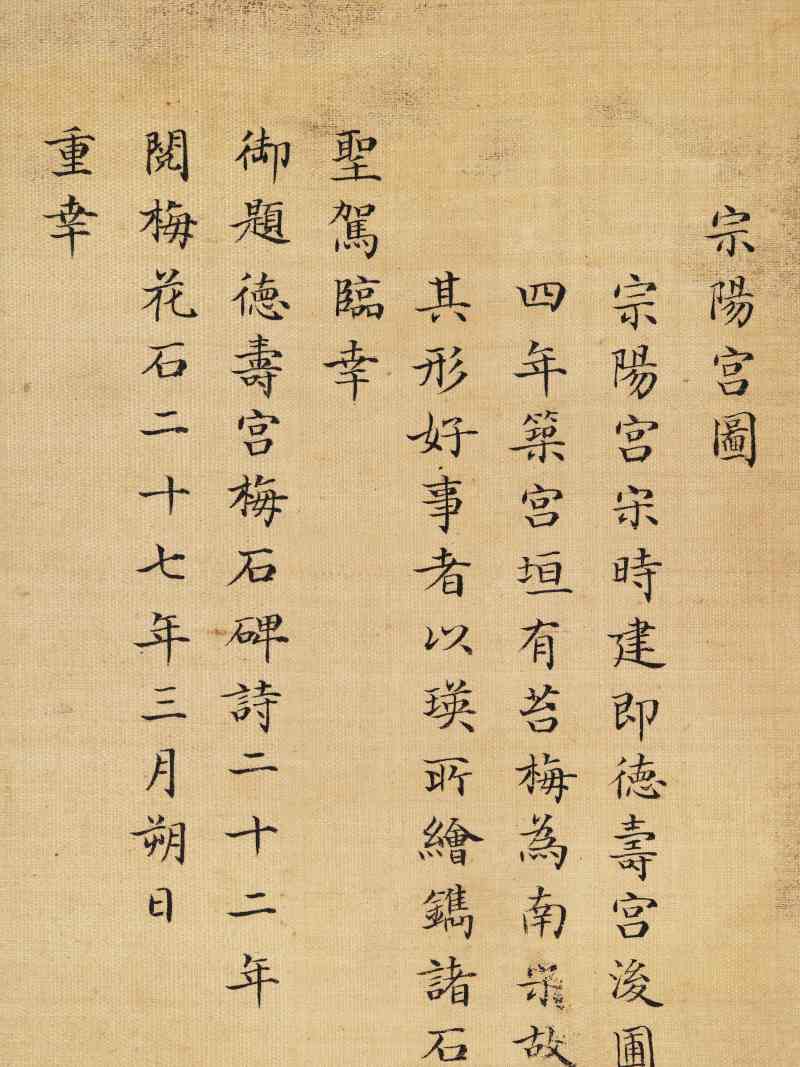 宗陽宮圖
宗陽宮宋時建即德壽宮後圃
四年築宮垣有苔梅為南宋故
其形好事者以瑛所繪鐫諸石
聖駕臨幸
御題德壽宮梅石碑詩二十二年
閱梅花石二十七年三月朔日
重幸